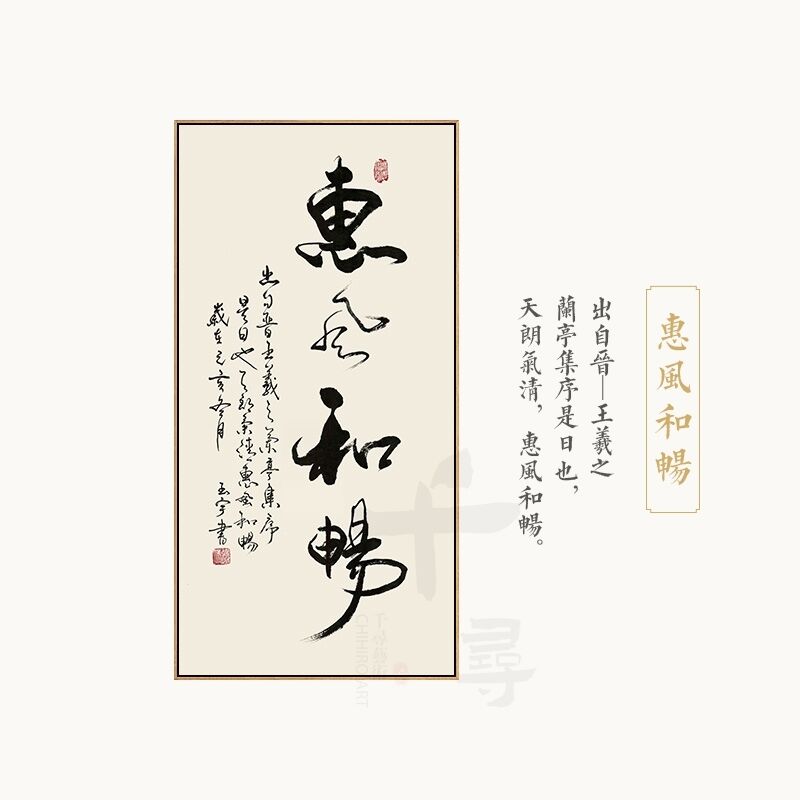 惠風和暢
出自晉—王羲之
蘭亭集序是日也，
天朗氣清，惠風和暢。
惠风和暢
出自晉王羲之蘭亭集序
是日也天朗氣清惠風和暢
歲在己亥冬月 玉宇書
千尋
CHIHIROART